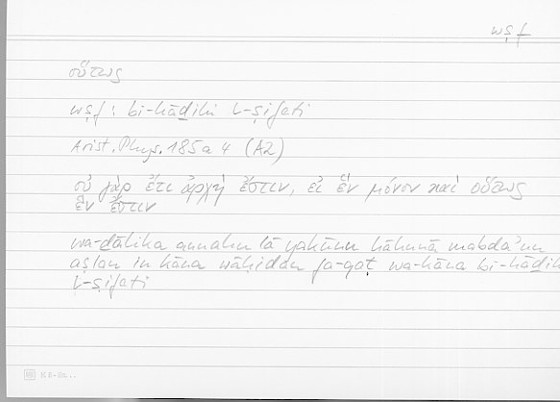 wṣf
οὕτως
wṣf : bi-hāḏihi l-ṣifati
Arist. Phys. 185a 4 (A2)
οὐ γὰρ ἔτι ἀρχὴ ἔστιν, εἰ ἓν μόνον καὶ οὕτως
ἓν ἔστιν
wa-ḏālika annahu lā yakūnu hāhunā mabdaʾun
aṣlan in kāna wāḥidan fa-qaṭ wa-kāna bi-hāḏih
l-ṣifati